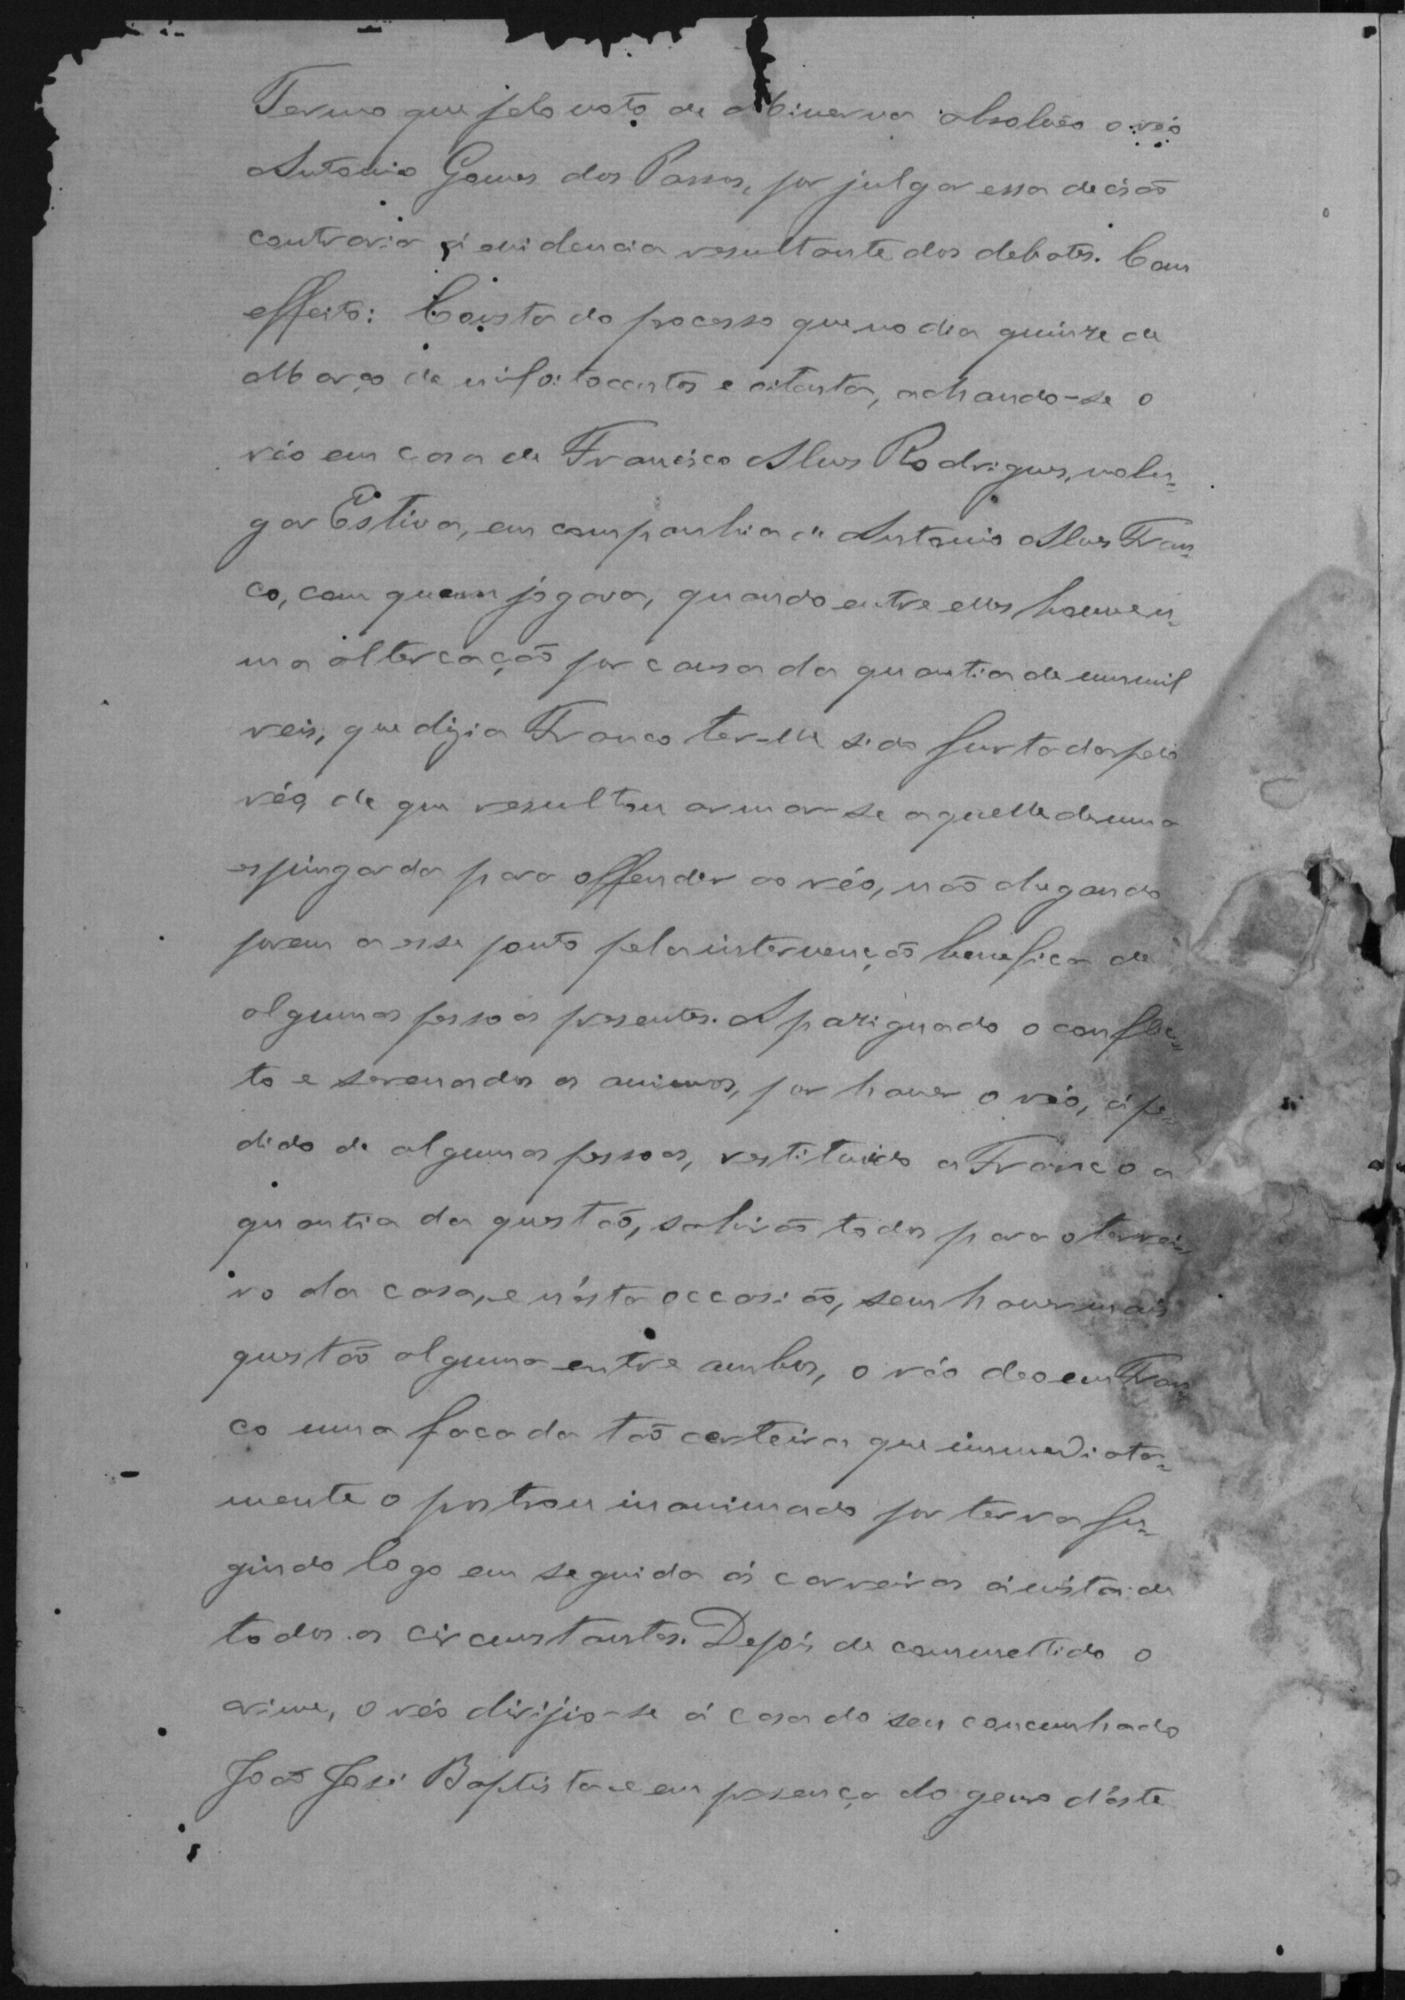 Termo que pelo voto de Minerva absolveo o réo
Antonio Gomes dos Passos, por julgar essa decisão
contraria á evidencia resultante dos debates. Com
effeito: Consta do processo que no dia quinze de
Março de mil oitocentos e oitenta, achando-se o
réo em casa de Francisco Alves Rodrigues, no lu-
gar Estiva, em companhia de Antonio Alves Fran-
co, com quem jogava, quando entre elles houve u-
ma altercação por causa da quantia de um mil
reis, que dizia Franco ter-lhe sido furtada pelo
réo, de que resultou armar-se aquelle de uma
espingarda para offender ao réo, não chegando
porem a esse ponto pela intervenção benefica de
algumas pessoas presentes. Apaziguado o confli-
to e serenados os animos, por haver o réo, á pe-
dido de algumas pessoas, restituido a Franco a
quantia da questão, sahirão todos para o terrei-
ro da casa, e nésta occasião, sem haver mais
questão alguma entre ambos, o réo deo em Fran-
co uma facada tão certeira que immediata-
mente o prostrou inanimado por terra fu-
gindo logo em seguida ás carreiras á vista de
todos os circunstantes. Depois de commettido o
crime, o réo dirijio-se á casa do seu concunhado
João José Baptista e em presença do genro déste